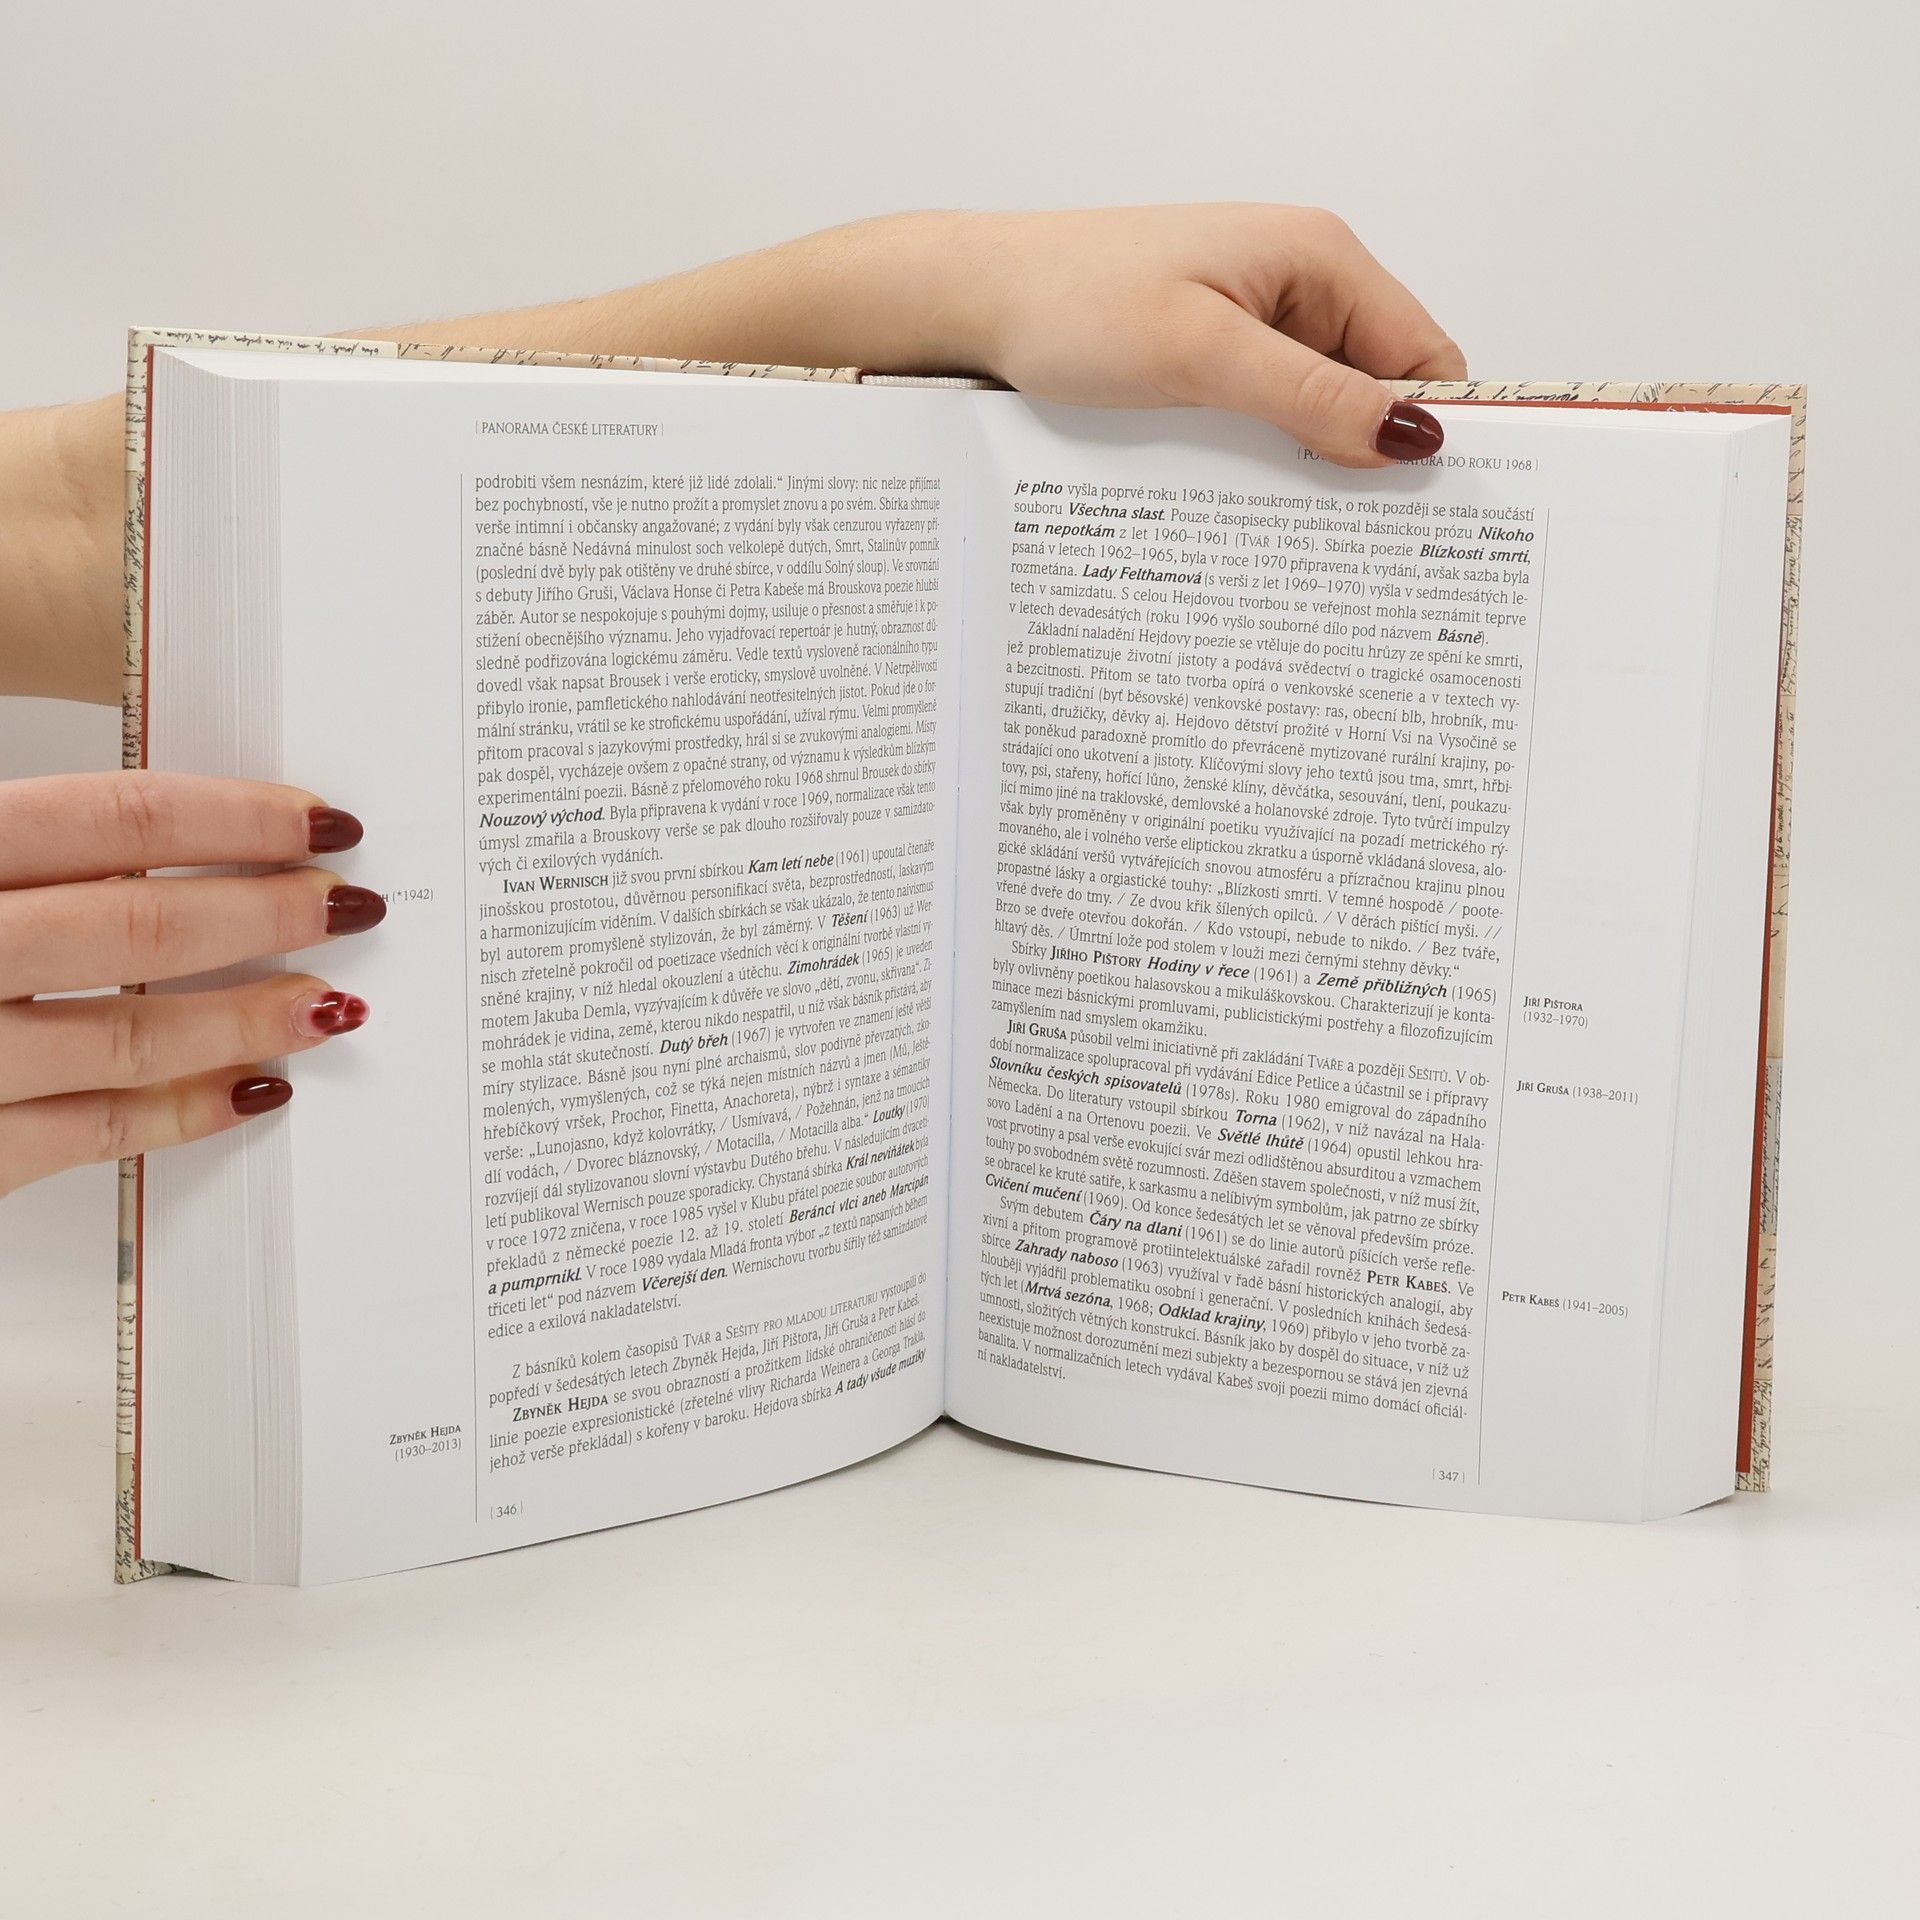 | PANORAMA ČESKÉ LITERATURY |
podrobiti všem nesnázím, které již lidé zdolali.“ Jinými slovy: nic nelze přijímat
bez pochybností, vše je nutno prožít a promyslet znovu a po svém. Sbírka shrnuje
verše intimní i občansky angažované; z vydání byly však cenzurou vyřazeny pří-
značné básně Nedávná minulost soch velkolepě dutých, Smrt, Stalinův pomník
(poslední dvě byly pak otištěny ve druhé sbírce, v oddílu Solný sloup). Ve srovnání
s debuty Jiřího Gruši, Václava Honse či Petra Kabeše má Brouskova poezie hlubší
záběr. Autor se nespokojuje s pouhými dojmy, usiluje o přesnost a směřuje i k po-
stižení obecnějšího významu. Jeho vyjadřovací repertoár je hutný, obraznost dů-
sledně podřizována logickému záměru. Vedle textů vysloveně racionálního typu
dovedl však napsat Brousek i verše eroticky, smyslově uvolněné. V Netrpělivosti
přibylo ironie, pamfletického nahlodávání neotřesitelných jistot. Pokud jde o for-
mální stránku, vrátil se ke strofickému uspořádání, užíval rýmu. Velmi promyšleně
přitom pracoval s jazykovými prostředky, hrál si se zvukovými analogiemi. Místy
pak dospěl, vycházeje ovšem z opačné strany, od významu k výsledkům blízkým
experimentální poezii. Básně z přelomového roku 1968 shrnul Brousek do sbírky
Nouzový východ. Byla připravena k vydání v roce 1969, normalizace však tento
úmysl zmařila a Brouskovy verše se pak dlouho rozšiřovaly pouze v samizdato-
vých či exilových vydáních.
IVAN WERNISCH již svou první sbírkou Kam letí nebe (1961) upoutal čtenáře
jinošskou prostotou, důvěrnou personifikací světa, bezprostředností, laskavým
a harmonizujícím viděním. V dalších sbírkách se však ukázalo, že tento naivismus
byl autorem promyšleně stylizován, že byl záměrný. V Těšení (1963) už Wer-
nisch zřetelně pokročil od poetizace všedních věcí k originální tvorbě vlastní vy-
sněné krajiny, v níž hledal okouzlení a útěchu. Zimohrádek (1965) je uveden
motem Jakuba Demla, vyzývajícím k důvěře ve slovo „dětí, zvonu, skřivana“. Zi-
mohrádek je vidina, země, kterou nikdo nespatřil, u níž však básník přistává, aby
se mohla stát skutečností. Dutý břeh (1967) je vytvořen ve znamení ještě větší
míry stylizace. Básně jsou nyní plné archaismů, slov podivně převzatých, zko-
molených, vymyšlených, což se týká nejen místních názvů a jmen (Mů, Ještě-
hřebíčkový vršek, Prochor, Finetta, Anachoreta), nýbrž i syntaxe a sémantiky
verše: „Lunojasno, když kolovrátky, / Usmívavá, / Požehnán, jenž na tmoucích
dlí vodách, / Dvorec bláznovský, / Motacilla, / Motacilla alba.“ Loutky (1970)
rozvíjejí dál stylizovanou slovní výstavbu Dutého břehu. V následujícím dvaceti-
letí publikoval Wernisch pouze sporadicky. Chystaná sbírka Král neviňátek byla
v roce 1972 zničena, v roce 1985 vyšel v Klubu přátel poezie soubor autorových
překladů z německé poezie 12. až 19. století Beránci vlci aneb Marcipán
a pumprnikl. V roce 1989 vydala Mladá fronta výbor „z textů napsaných během
třiceti let“ pod názvem Včerejší den. Wernischovu tvorbu šířily též samizdatové
edice a exilová nakladatelství.
Z básníků kolem časopisů TVÁŘ a SEŠITY PRO MLADOU LITERATURU vystoupili do
popředí v šedesátých letech Zbyněk Hejda, Jiří Pištora, Jiří Gruša a Petr Kabeš.
ZBYNĚK HEJDA se svou obrazností a prožitkem lidské ohraničenosti hlásí do
linie poezie expresionistické (zřetelné vlivy Richarda Weinera a Georga Trakla,
jehož verše překládal) s kořeny v baroku. Hejdova sbírka A tady všude muziky
H (*1942)
ZBYNĚK HEJDA
(1930–2013)
| 346 |
RATURA DO ROKU 1968 |
je plno vyšla poprvé roku 1963 jako soukromý tisk, o rok později se stala součástí
souboru Všechna slast. Pouze časopisecky publikoval básnickou prózu Nikoho
tam nepotkám z let 1960–1961 (TVÁŘ 1965). Sbírka poezie Blízkosti smrti,
psaná v letech 1962–1965, byla v roce 1970 připravena k vydání, avšak sazba byla
rozmetána. Lady Felthamová (s verši z let 1969–1970) vyšla v sedmdesátých le-
tech v samizdatu. S celou Hejdovou tvorbou se veřejnost mohla seznámit teprve
v letech devadesátých (roku 1996 vyšlo souborné dílo pod názvem Básně).
Základní naladění Hejdovy poezie se vtěluje do pocitu hrůzy ze spění ke smrti,
jež problematizuje životní jistoty a podává svědectví o tragické osamocenosti
a bezcitnosti. Přitom se tato tvorba opírá o venkovské scenerie a v textech vy-
stupují tradiční (byť běsovské) venkovské postavy: ras, obecní blb, hrobník, mu-
zikanti, družičky, děvky aj. Hejdovo dětství prožité v Horní Vsi na Vysočině se
tak poněkud paradoxně promítlo do převráceně mytizované rurální krajiny, po-
strádající ono ukotvení a jistoty. Klíčovými slovy jeho textů jsou tma, smrt, hřbi-
tovy, psi, stařeny, hořící lůno, ženské klíny, děvčátka, sesouvání, tlení, poukazu-
jící mimo jiné na traklovské, demlovské a holanovské zdroje. Tyto tvůrčí impulzy
však byly proměněny v originální poetiku využívající na pozadí metrického rý-
movaného, ale i volného verše eliptickou zkratku a úsporně vkládaná slovesa, alo-
gické skládání veršů vytvářejících snovou atmosféru a přízračnou krajinu plnou
propastné lásky a orgiastické touhy: „Blízkosti smrti. V temné hospodě / poote-
vřené dveře do tmy. / Ze dvou křik šílených opilců. / V děrách pištící myši. //
Brzo se dveře otevřou dokořán. / Kdo vstoupí, nebude to nikdo. / Bez tváře,
hltavý děs. / Úmrtní lože pod stolem v louži mezi černými stehny děvky.“
Sbírky JIŘÍHO PIŠTORY Hodiny v řece (1961) a Země přibližných (1965)
byly ovlivněny poetikou halasovskou a mikuláškovskou. Charakterizují je konta-
minace mezi básnickými promluvami, publicistickými postřehy a filozofizujícím
zamyšlením nad smyslem okamžiku.
JIŘÍ GRUŠA působil velmi iniciativně při zakládání TVÁŘE a později SEŠITŮ. V ob-
dobí normalizace spolupracoval při vydávání Edice Petlice a účastnil se i přípravy
Slovníku českých spisovatelů (1978s). Roku 1980 emigroval do západního
Německa. Do literatury vstoupil sbírkou Torna (1962), v níž navázal na Hala-
sovo Ladění a na Ortenovu poezii. Ve Světlé lhůtě (1964) opustil lehkou hra-
vost prvotiny a psal verše evokující svár mezi odlidštěnou absurditou a vzmachem
touhy po svobodném světě rozumnosti. Zděšen stavem společnosti, v níž musí žít,
se obracel ke kruté satiře, k sarkasmu a nelíbivým symbolům, jak patrno ze sbírky
Cvičení mučení (1969). Od konce šedesátých let se věnoval především próze.
Svým debutem Čáry na dlani (1961) se do linie autorů píšících verše refle-
xivní a přitom programově protiintelektuálské zařadil rovněž PETR KABEŠ. Ve
sbírce Zahrady naboso (1963) využíval v řadě básní historických analogií, aby
hlouběji vyjádřil problematiku osobní i generační. V posledních knihách šedesá-
tých let (Mrtvá sezóna, 1968; Odklad krajiny, 1969) přibylo v jeho tvorbě za-
umnosti, složitých větných konstrukcí. Básník jako by dospěl do situace, v níž už
neexistuje možnost dorozumění mezi subjekty a bezespornou se stává jen zjevná
banalita. V normalizačních letech vydával Kabeš svoji poezii mimo domácí oficiál-
ní nakladatelství.
JIŘÍ PIŠTORA
(1932–1970)
JIŘÍ GRUŠA (1938–2011)
PETR KABEŠ (1941–2005)
| 347 |